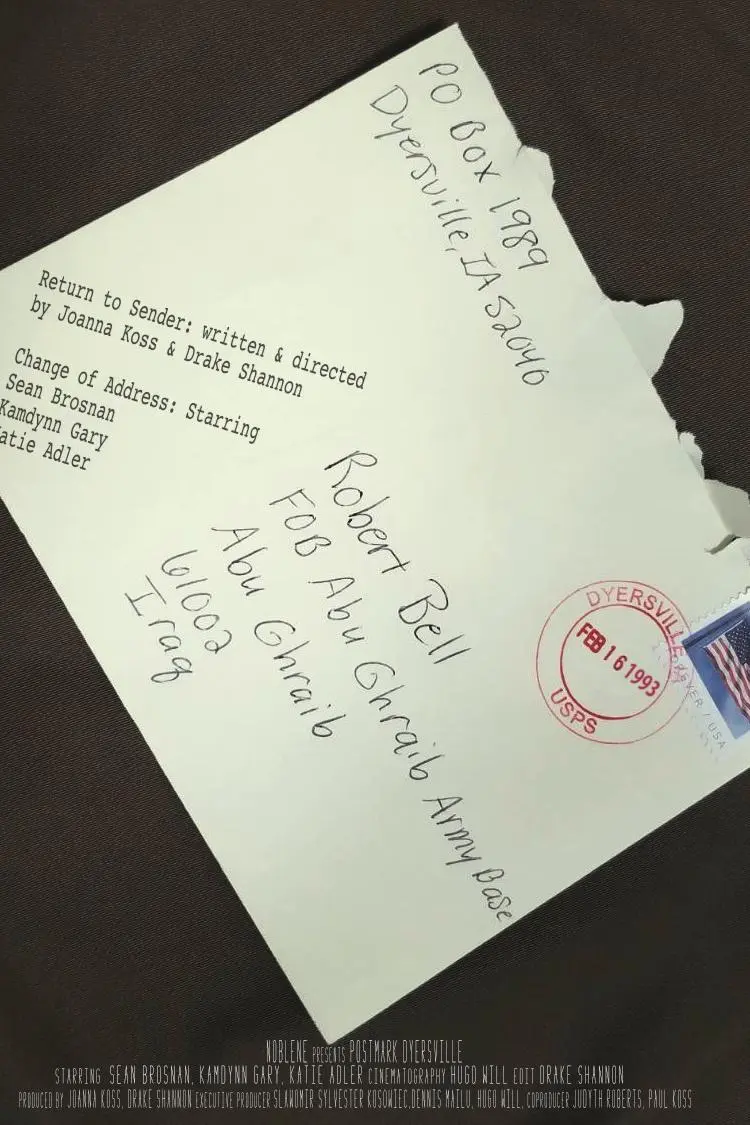 PO Box 1989
Dyersville, IA 52040
Return to Sender: written & directed
by Joanna Koss & Drake Shannon
Change of Address: Starring
Sean Brosnan
Kamdynn Gary
Katie Adler
Robert Bell
FOB Abu Ghraib Army Base
Abu Ghraib
61002
Iraq
DYERSVILLE
FEB 16 1993
USPS
FOREVER / USA
NOBLENE PRESENTS POSTMARK DYERSVILLE
STARRING SEAN BROSNAN, KAMDYNN GARY, KATIE ADLER CINEMATOGRAPHY HUGO WILL EDIT DRAKE SHANNON
PRODUCED BY JOANNA KOSS, DRAKE SHANNON EXECUTIVE PRODUCER SLAWOMIR SYLVESTER KOSOWIEC,DENNIS MAILU, HUGO WILL, COPRODUCER JUDYTH ROBERTS, PAUL KOSS